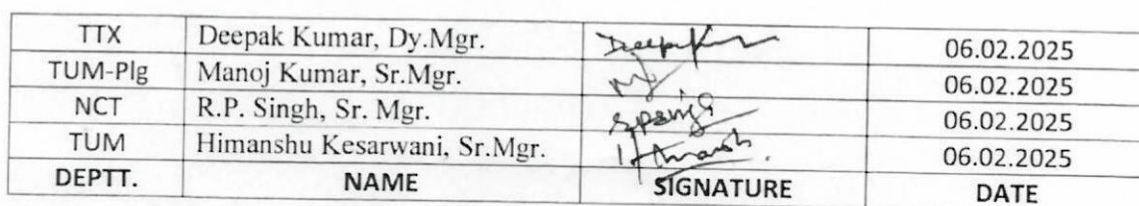 TTX Deepak Kumar, Dy.Mgr. Deepak 06.02.2025
TUM-Plg Manoj Kumar, Sr.Mgr. 06.02.2025
NCT R.P. Singh, Sr. Mgr. 06.02.2025
TUM Himanshu Kesarwani, Sr.Mgr. 06.02.2025
DEPTT. NAME SIGNATURE DATE